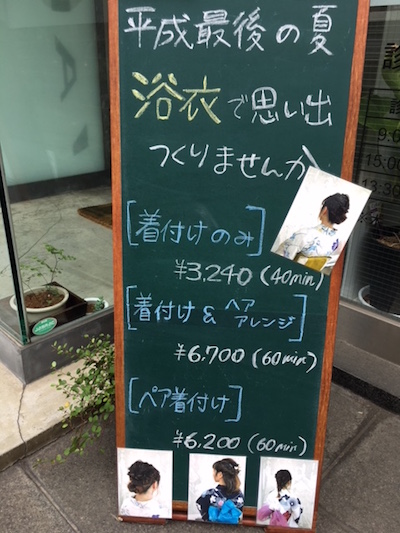 平成最後の夏
浴衣で思い出
つくりませんか
[着付けのみ]
¥3,240(40min)
[着付け&ヘアアレンジ]
¥6,700(60min)
[ペア着付け]
¥6,200(60min)
診
9:0
15:00
13:30